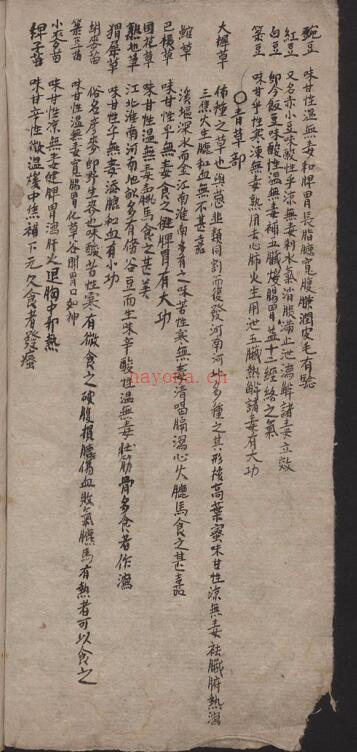 豌豆 味甘性温無毒和脾胃長脂臕寬腹臕潤皮毛有驗
紅豆 又名赤小豆味酸性平涼無毒利水氣消脹滿止泄瀉解諸毒立效
白豆 即今飯豆味酸性温無毒補五臟煖腸胃益十二經絡之氣
菉豆 味甘平性寒凍無毒熟用去心肺火生用泄五臟熱解諸毒有大功
○青草部
大 草 佈種之草也與 韮類同割而復發河南河北多種之其形 高葉 味甘性涼無毒祛臟腑熱瀉
三焦火生臕和血無 甚 
 草 溪堰深水而金江南淮南多有之味苦性寒無毒清咽膈瀉心火臕馬食之甚 
巴根草 味甘性平無毒食之健脾胃有大功
回花草 味甘性温無毒 馬食之甚美
熟地草 江北淮南河南地 多有 谷豆而生味辛酸性温無毒壯筋骨多食者作瀉
猬 草 味甘性平無毒添臕和血有小功
 麥苗 俗名彦麥即野生麥也味酸苦性寒有微食之破腹損臕傷血敗氣臕馬有熱者可以食之
菉豆苗 味甘性温無毒寬腸胃化草谷開胃口如神
小麥苗 味甘性涼無毒健脾胃瀉肝火退胸中郁熱
稗子苗 味甘辛性微温煖中焦補下元久食者發瘙
hayona.cn